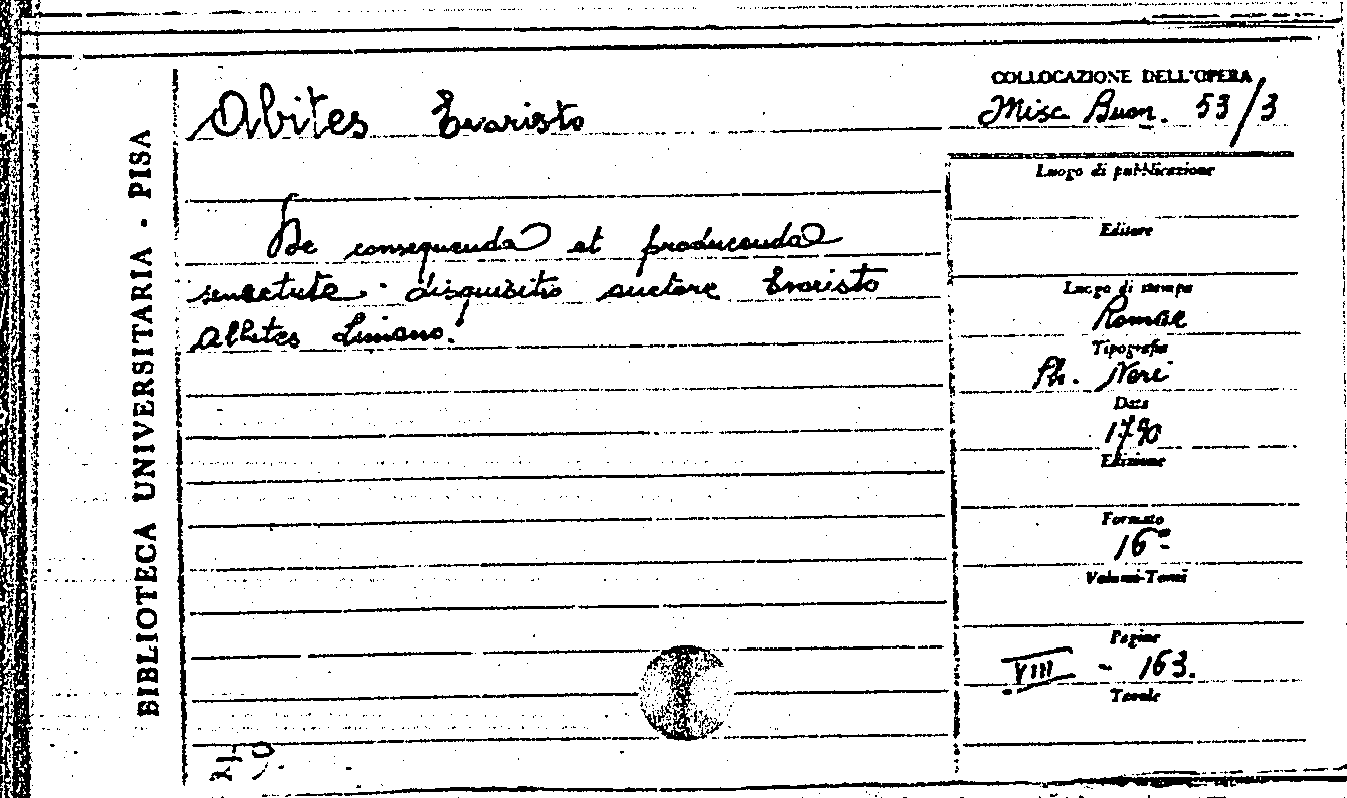 BIBLIOTECA UNIVERSITARIA - PISA
Abites Evaristo
De consequenda et producenda
senectute. disquisitio auctore Evaristo
Albites
COLLOCAZIONE DELL'OPERA
Misc Buon. 53/3
Luogo di pubblicazione
Editore
Luogo di stampa
Romae
Tipografia
Ph. Neri
Data
1790
Edizione
Formato
16°
Volumi-Tomi
Pagine
VIII - 163.
Tavole